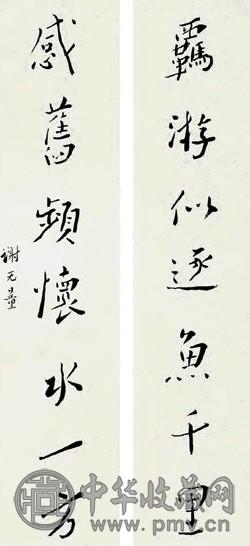 羈游似逐魚千里
感舊頻懷水一方
謝无量
中华收藏网
www.pmv.cn